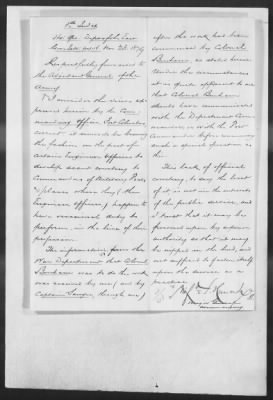 5th Ind't
Respectfully forwarded to
the Adjutant General of the
Army.
I consider the views ex-
pressed herein by the Com-
manding officer
correct; it cannot be
the fashion on the part of
certain Engineer officers to
courtesy to
Commanders of
places where they (the
Engineer officers) happen to
have occasional duty to
perform, in the line of their
profession.
The information from the
War Department that Colonel
was to do the work
was received by me, and by
Captain through me,
after the work had been
commenced by Colonel
as stated herein.
Under the circumstances
it is quite apparent to me
that Colonel
should have communicated
with the Department Com-
mander, or with the Post
Commander before
such a special operation as
this.
This lack of official
courtesy, to say the least
of it, is not in the interests
of the public service, and
I trust that it may be
frowned upon by superior
authority so that it may
be nipped in the bud, and
not suffered to fasten itself
upon the service as a
practice.
Major General